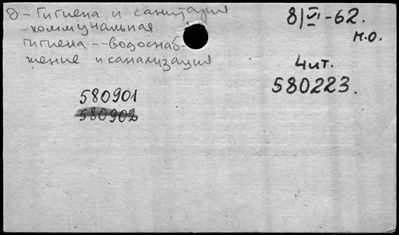 8 - Гигиена и санитария
- коммунальная
гигиена -- водоснаб-
жение и канализация
8/VI - 62.
м.о.
4 чит.
580223.
580901
580902